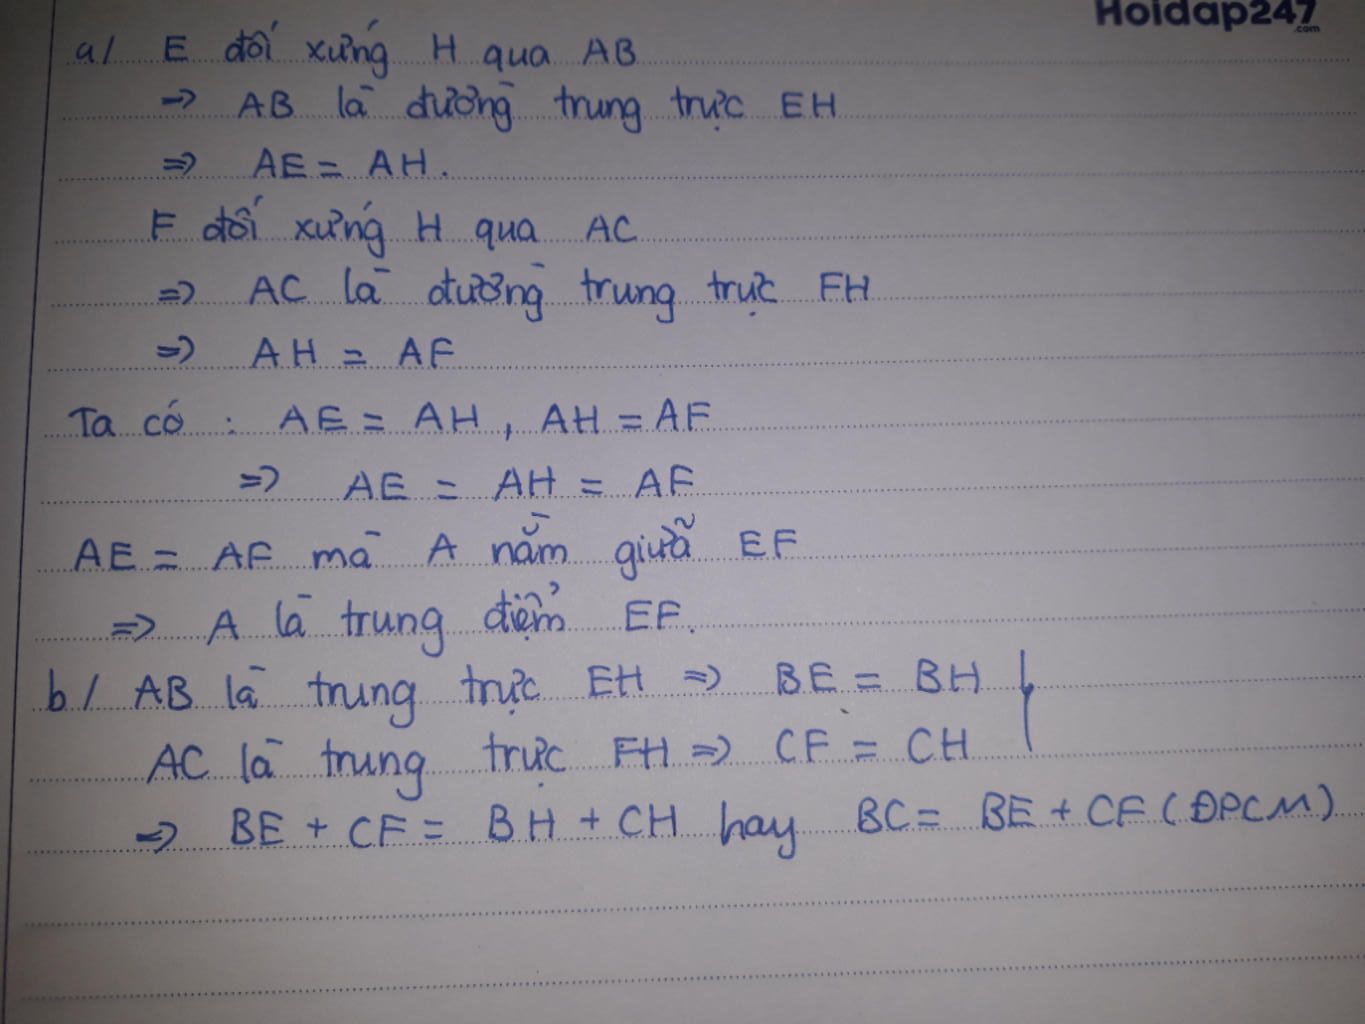 Hoidap247
.com
a/ E đối xứng H qua AB
=> AB là đường trung trực EH
=> AE = AH.
F đối xứng H qua AC
=> AC là đường trung trực FH
=> AH = AF
Ta có : AE = AH , AH = AF
=> AE = AH = AF
AE = AF mà A nằm giữa EF
=> A là trung điểm EF.
b/ AB là trung trực EH => BE = BH
AC là trung trực FH => CF = CH
=> BE + CF = BH + CH hay BC = BE + CF (ĐPCM)